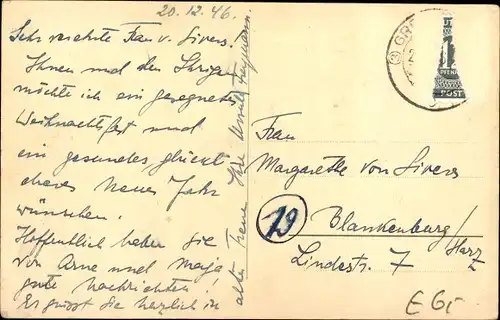 20.12.46.
Sehr verehrte Frau v. Sivers!
Ihnen und den Ihrigen
möchte ich ein gesegnetes
Weihnachtsfest und
ein gesundes, glückl
icheres neues Jahr
wünschen.
Hoffentlich haben Sie
von Arne und Maja
gute Nachrichten!
Es grüsst Sie herzlich in
alter Treue Ihre
GR
PFENN
POST
Frau
Margarethe von Sivers
19
Blankenburg/
Harz
Lindestr. 7
E6,-